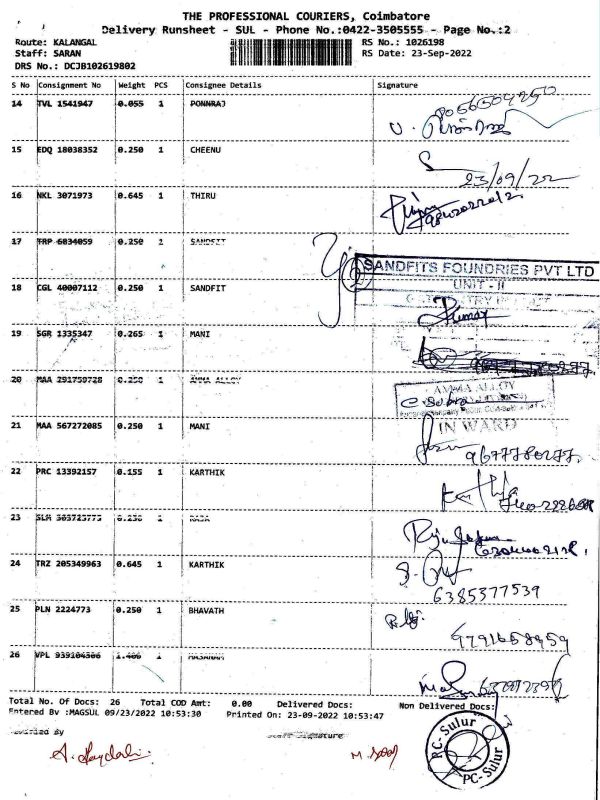 THE PROFESSIONAL COURIERS, Coimbatore
Delivery Runsheet - SUL - Phone No.:0422-3505555 - Page No.:2
Route: KALANGAL RS No.: 1026198
Staff: SARAN RS Date: 23-Sep-2022
DRS No.: DCJB102619802
S No Consignment No Weight PCS Consignee Details Signature
14 TVL 1541947 0.055 1 PONNRAJ
8056504250
15 EDQ 18038352 0.250 1 CHEENU
23/09/22
16 NKL 3071973 0.645 1 THIRU
17 TRP 6034059 0.250 1 SANDFIT
SANDFITS FOUNDRIES PVT LTD
18 CGL 40007112 0.250 1 SANDFIT
UNIT - II
Kumar
19 SGR 1335347 0.265 1 MANI
20 MAA 291759728 0.250 1 AMMA ALLOY
AMMA ALLOY
21 MAA 567272085 0.250 1 MANI
IN WARD
9677780277
22 PRC 13392157 0.155 1 KARTHIK
23 SLM 0.250 1 RAJA
24 TRZ 205349963 0.645 1 KARTHIK
6385377539
25 PLN 2224773 0.250 1 BHAVATH
9791658959
26 VPL 939104306 1.400 1
Total No. Of Docs: 26 Total COD Amt: 0.00 Delivered Docs: Non Delivered Docs:
Entered By :MAGSUL 09/23/2022 10:53:30 Printed On: 23-09-2022 10:53:47
Verified By Staff Signature
RC-Sulur
PC-Sulur